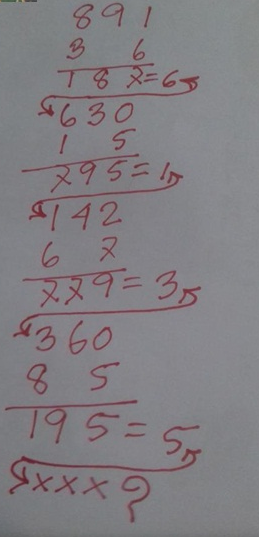 891
3 6
187=6
630
1 5
795=1
142
6 7
779=3
360
8 5
195=5
xxx?